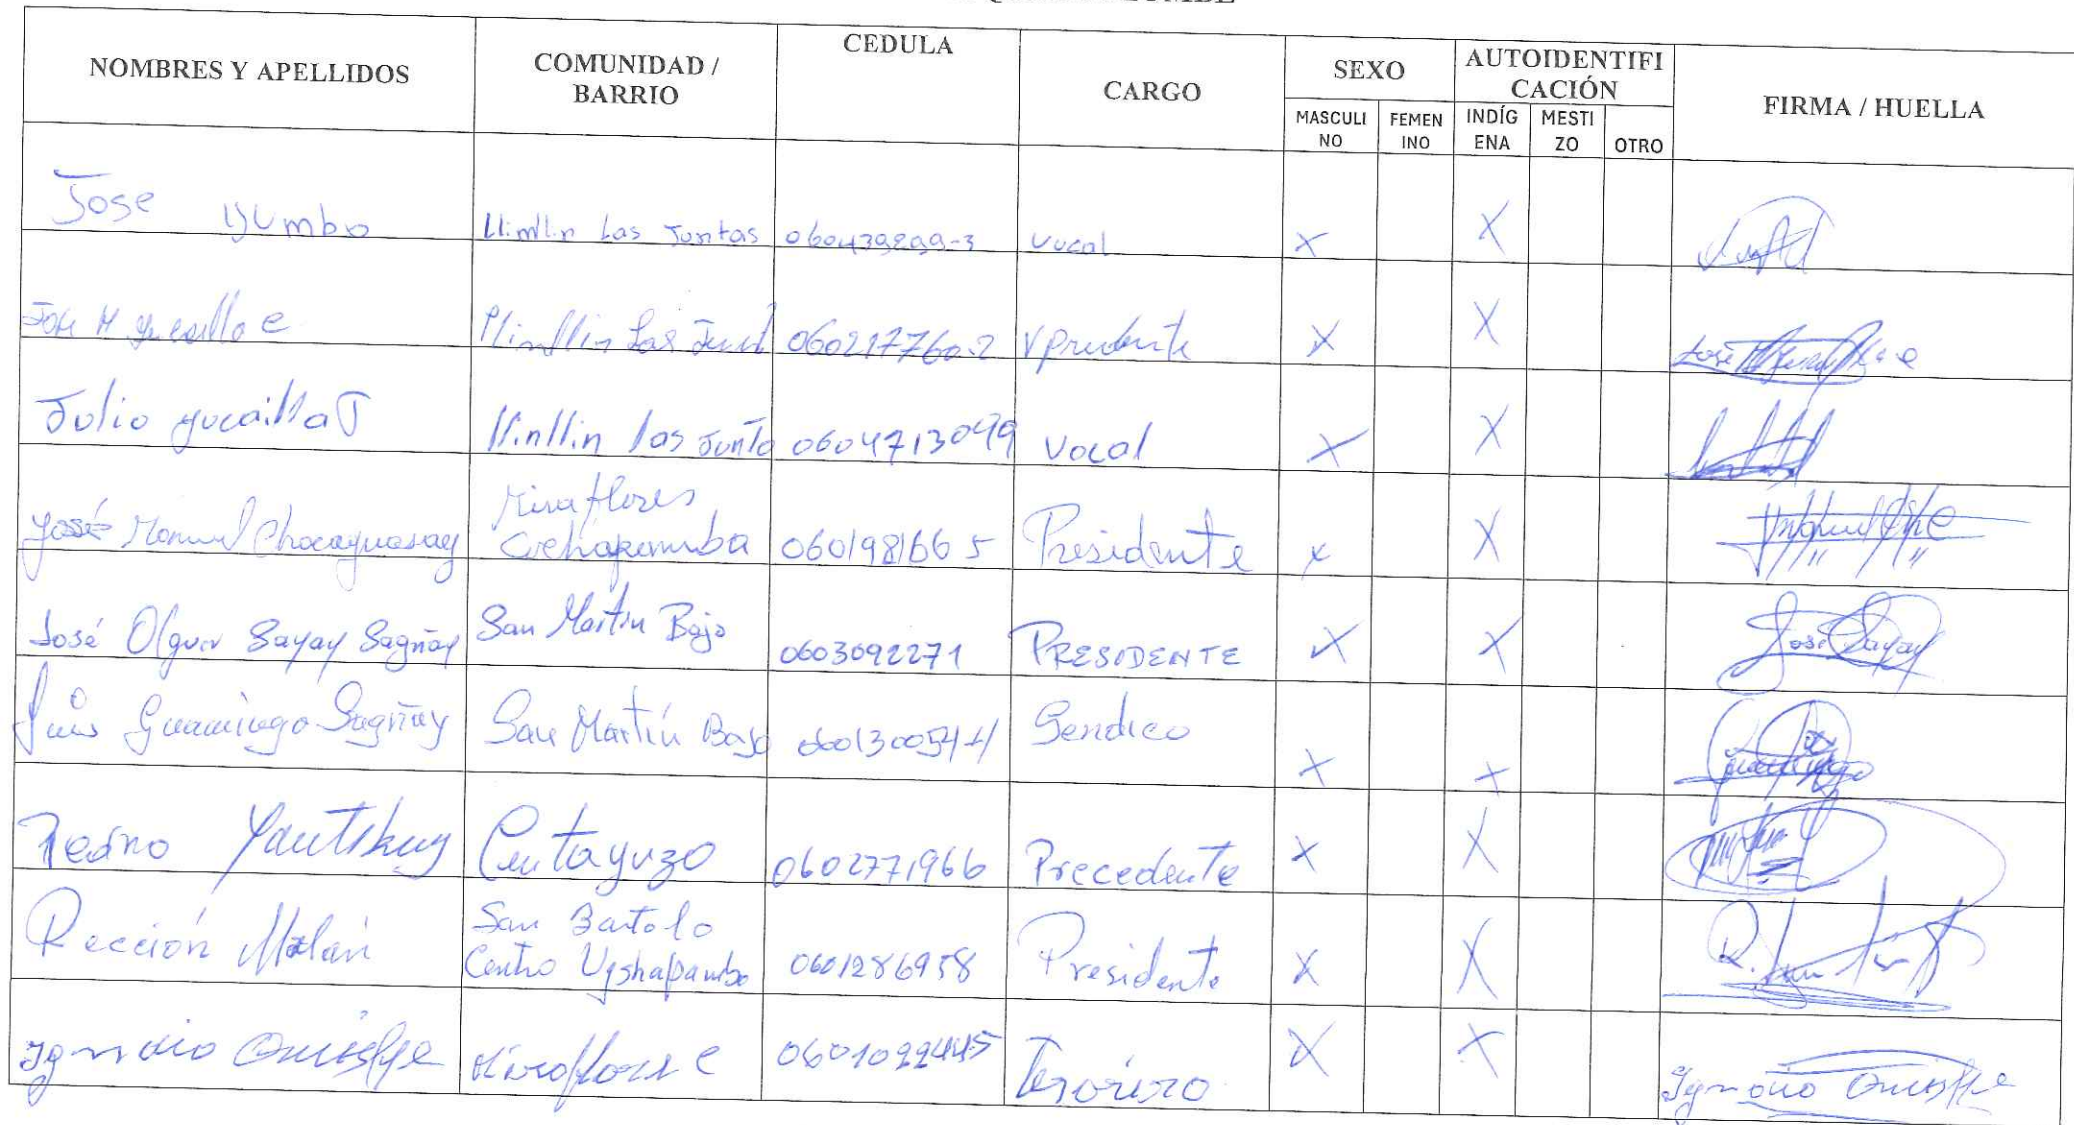 NOMBRES Y APELLIDOS COMUNIDAD / BARRIO CEDULA CARGO SEXO AUTOIDENTIFICACIÓN FIRMA / HUELLA
MASCULINO FEMENINO INDÍGENA MESTIZO OTRO
Jose Yumbo Llinllin Las Juntas 060439899-3 Vocal X X
Jose M Yucailla C Llinllin Las Junt 060217760-2 Vpresidente X X
Julio Yucailla T Llinllin las Junta 0604713049 Vocal X X
José Manuel Chocaguasay Miraflores Cochapamba 060198166 5 Presidente X X
José Olguer Sayay Sagñay San Martin Bajo 0603092271 PRESIDENTE X X José Sayay
Luis Guamingo Sagñay San Martín Bajo Sendico X X
Pedro Centayuzo 0602771966 Precedente X X
Rección Malán San Bartolo Centro Ugshapamba 0601286958 Presidente X X
Ignacio Quishpe Miraflores C 0601022445 Tesorero X X Ignacio Quishpe